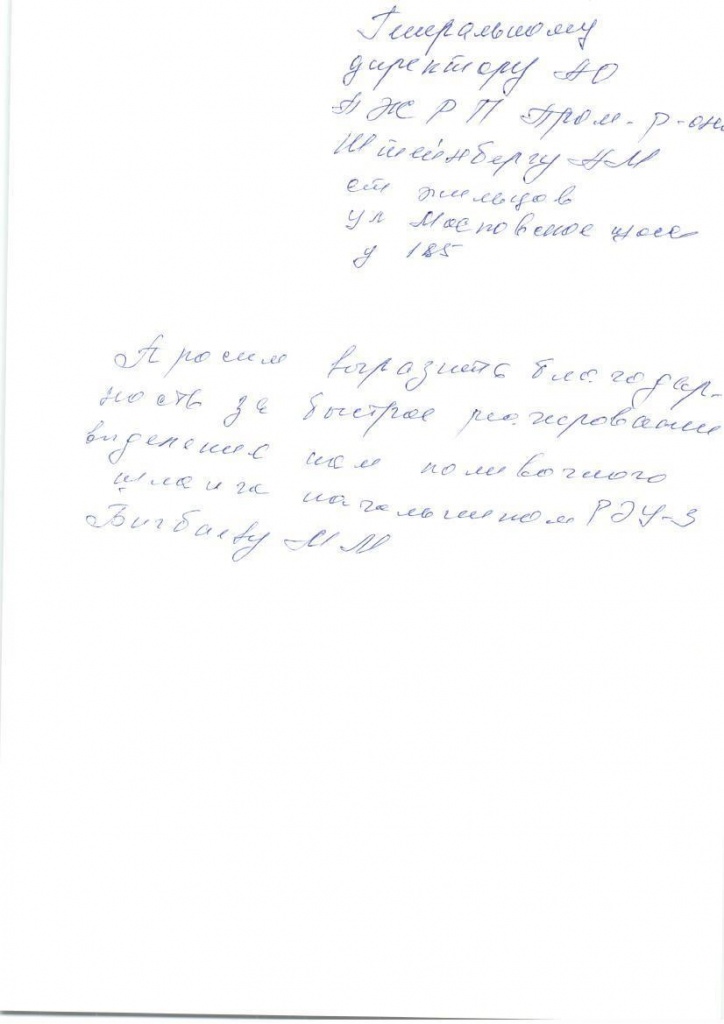 Генеральному
директору АО
ПЖРП Пром-р-она
Штейнбергу АМ
от жильцов
ул Московское шоссе
185
Просим выразить благодар-
ность за быстрое реагирование
выделения нам поливочного
шланга начальником РЭУ-3
Бигбаеву ММ